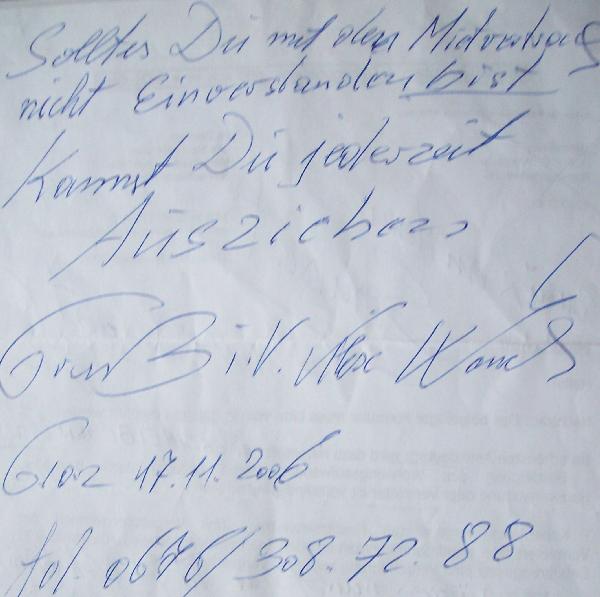 Solltes Du mit den Mietvertrag
nicht Einverstanden bist
Kannst Du jederzeit
Ausziehen
Gruß i.V.
Graz 17.11.2006
tel. 0676/308.72.88